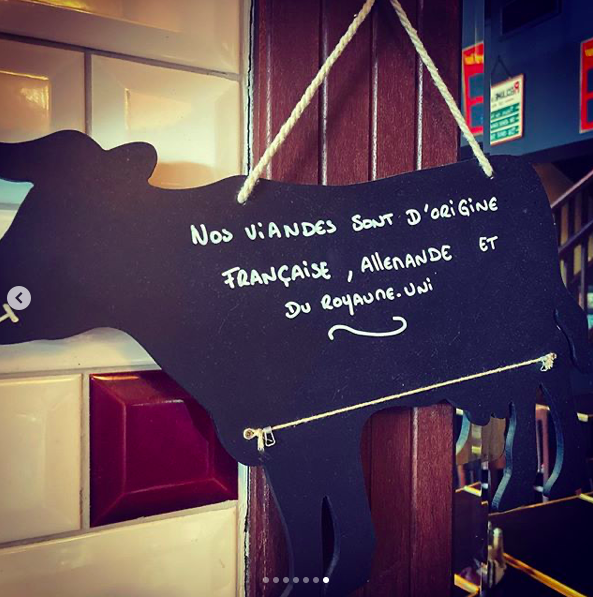 NOS VIANDES SONT D'ORIGINE
FRANÇAISE, ALLEMANDE ET
DU ROYAUME-UNI